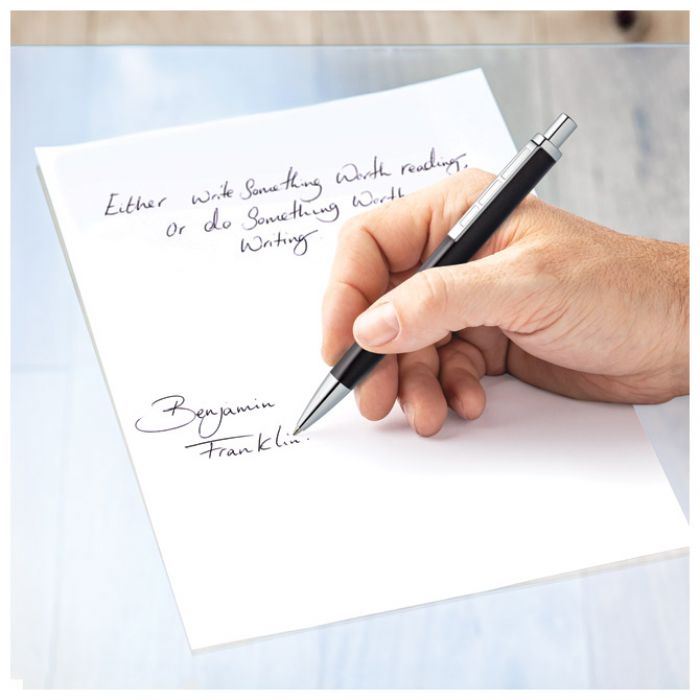 Either write Something Worth reading,
or do Something Worth
Writing.
Benjamin
Franklin.